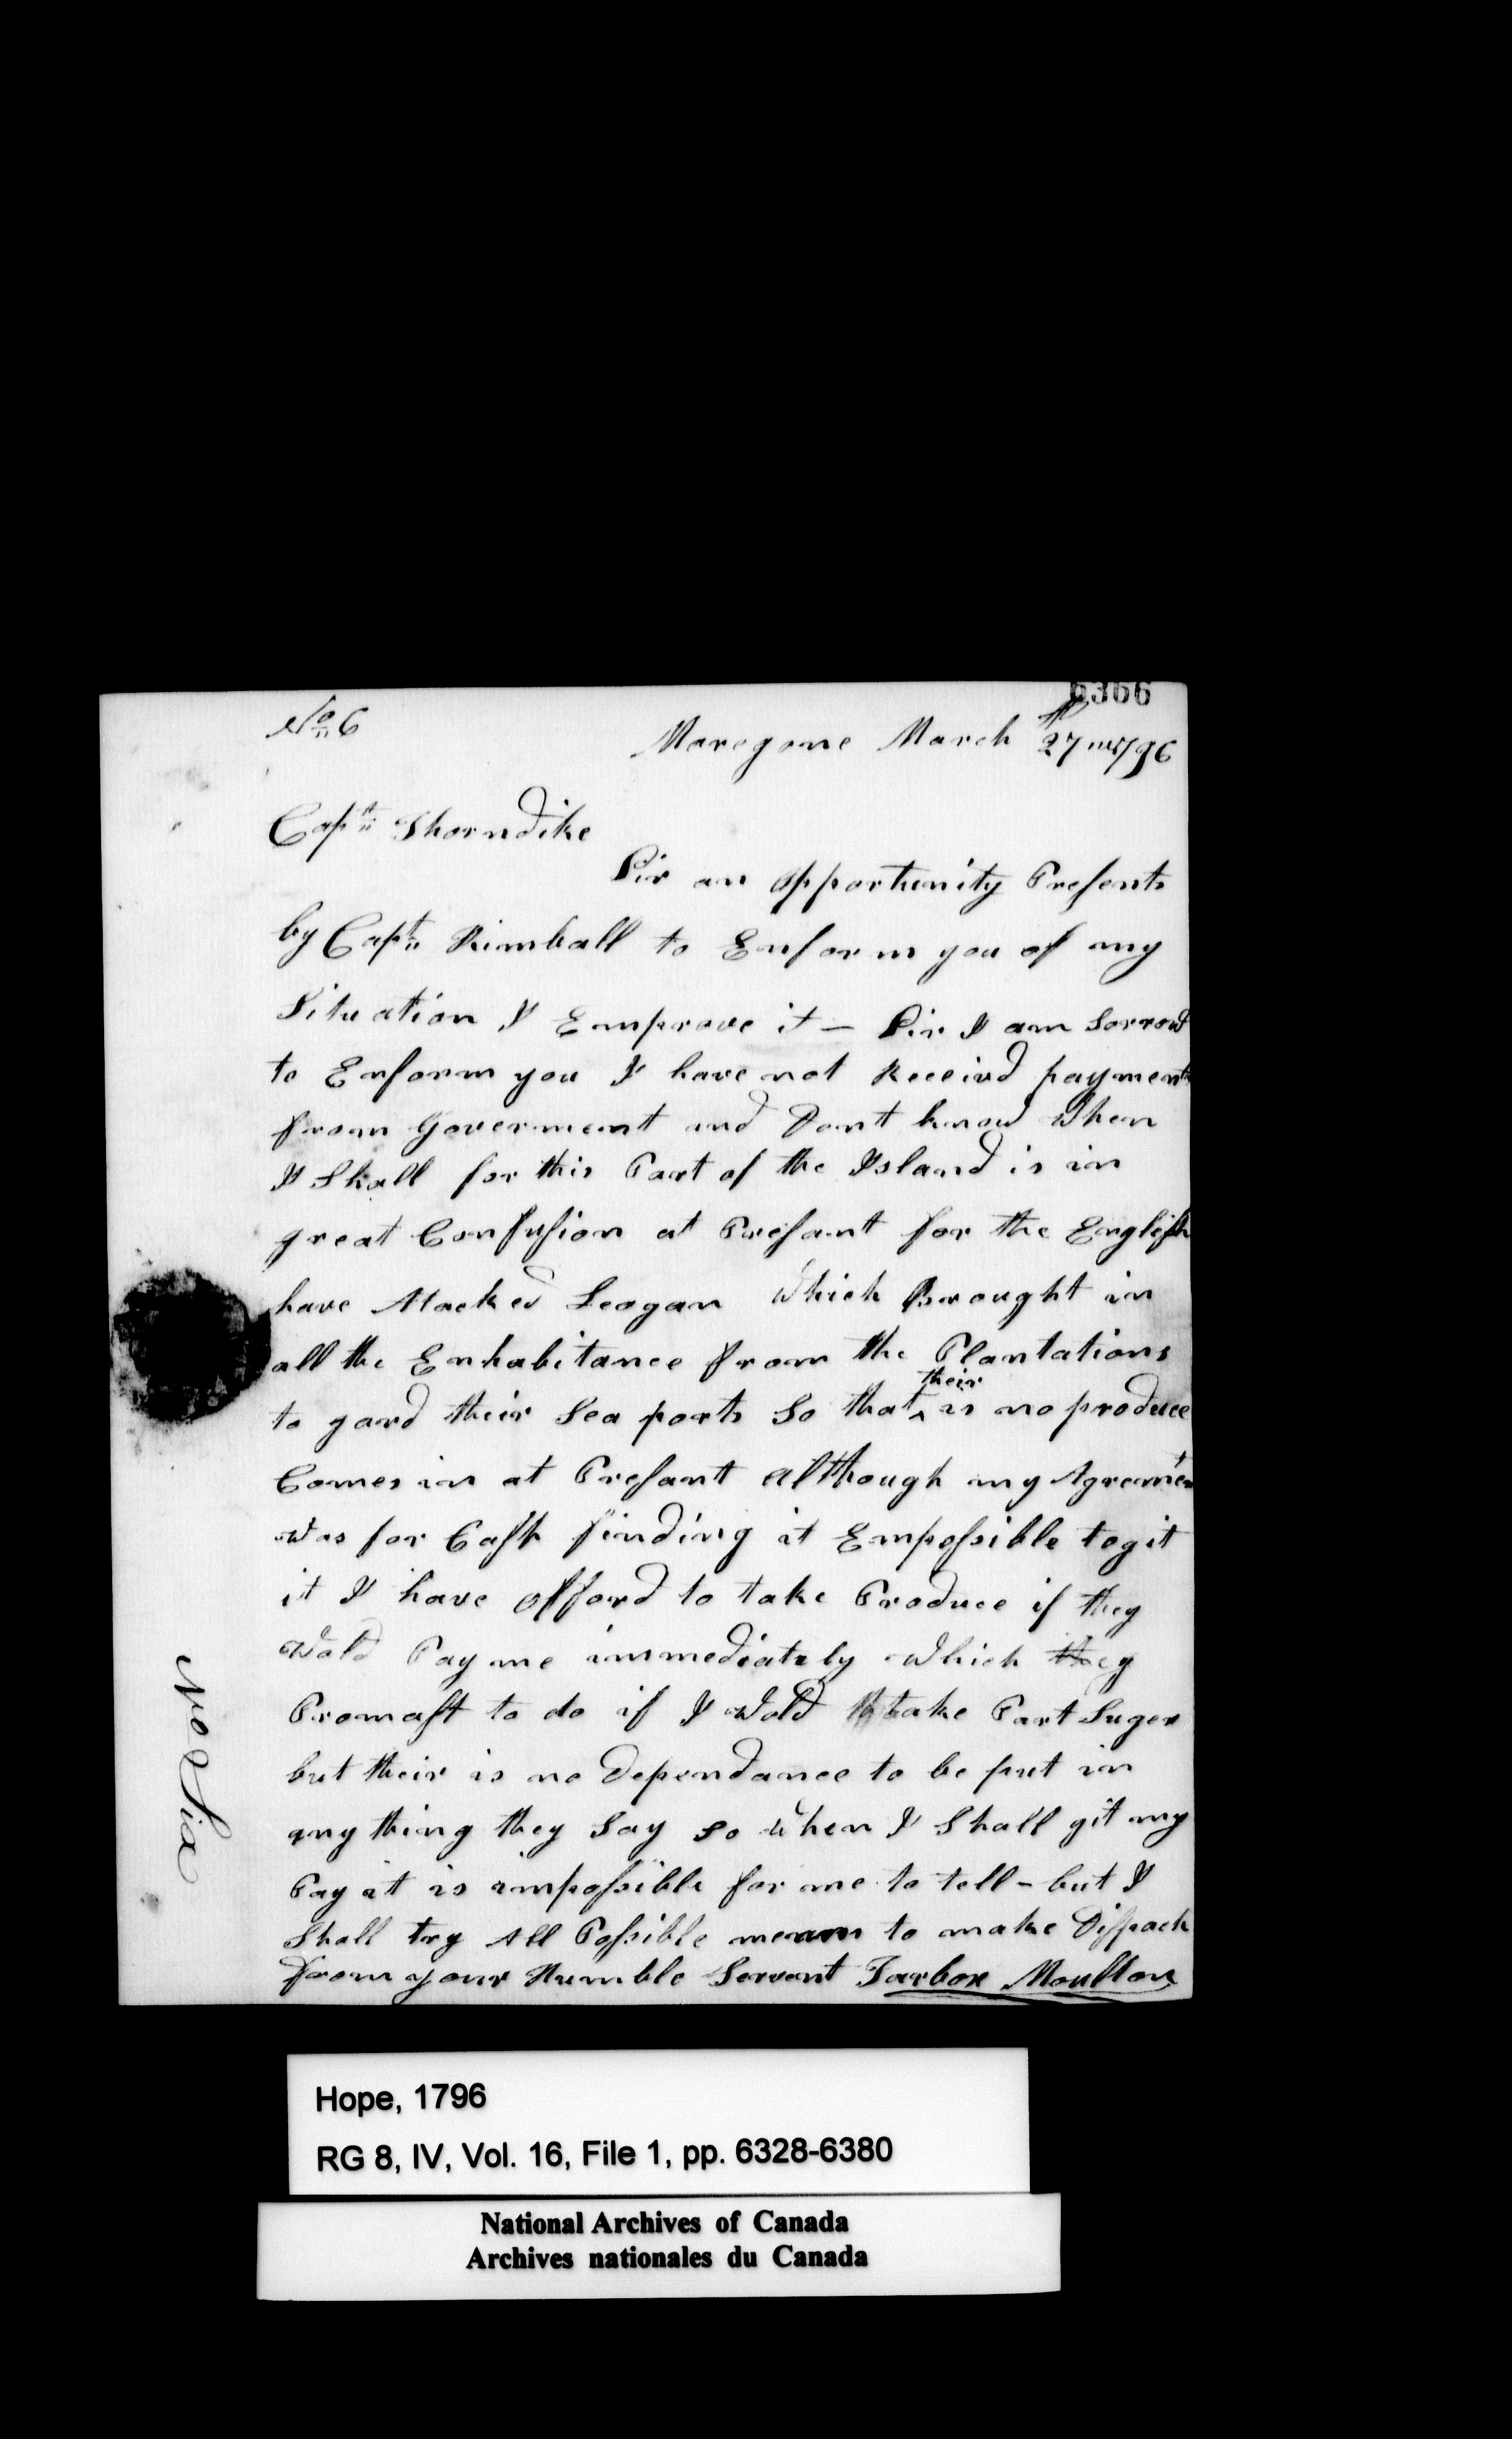 6366
No 6
Maregone March 27 1796
Capt Thorndike
Sir an opportunity Presents
by Capt Kimball to Enform you of my
Situation I Emprove it — Sir I am Sorrow
to Enform you I have not Receivd payment
from Goverment and Dont know When
I Shall for this Part of the Island is in
great Confusion at Presant for the English
have Atacked Leogan Which Brought in
all the Enhabitance from the Plantations
to gard their Sea ports So that their is no produce
Comes in at Presant Although my Agrement
Was for Cash finding it Empossible to git
it I have offord to take Produce if they
Wold Pay me immediately Which they
Promast to do if I Wold take Part Suger
but their is no Dependance to be put in
any thing they Say so When I Shall git my
Pay it is impossible for me to tell - but I
Shall try All Possible means to make Dispach
from your Humble Servant Tarbox Moulton
No Six
Hope, 1796
RG 8, IV, Vol. 16, File 1, pp. 6328-6380
National Archives of Canada
Archives nationales du Canada